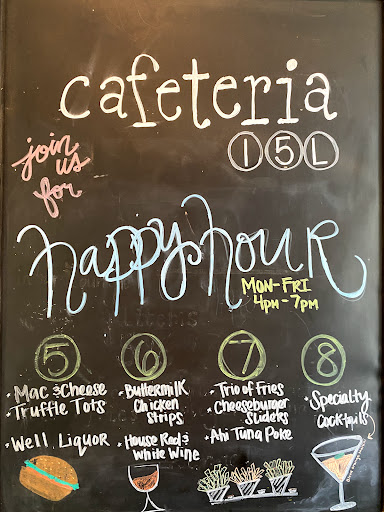 cafeteria
15L
join
us
for
happy hour
MON-FRI
4PM-7PM
5
• Mac & Cheese
• Truffle Tots
• Well Liquor
6
• Buttermilk
Chicken
Strips
• House Red &
White Wine
7
• Trio of Fries
• Cheeseburger
Sliders
• Ahi Tuna Poke
8
• Specialty
Cocktails